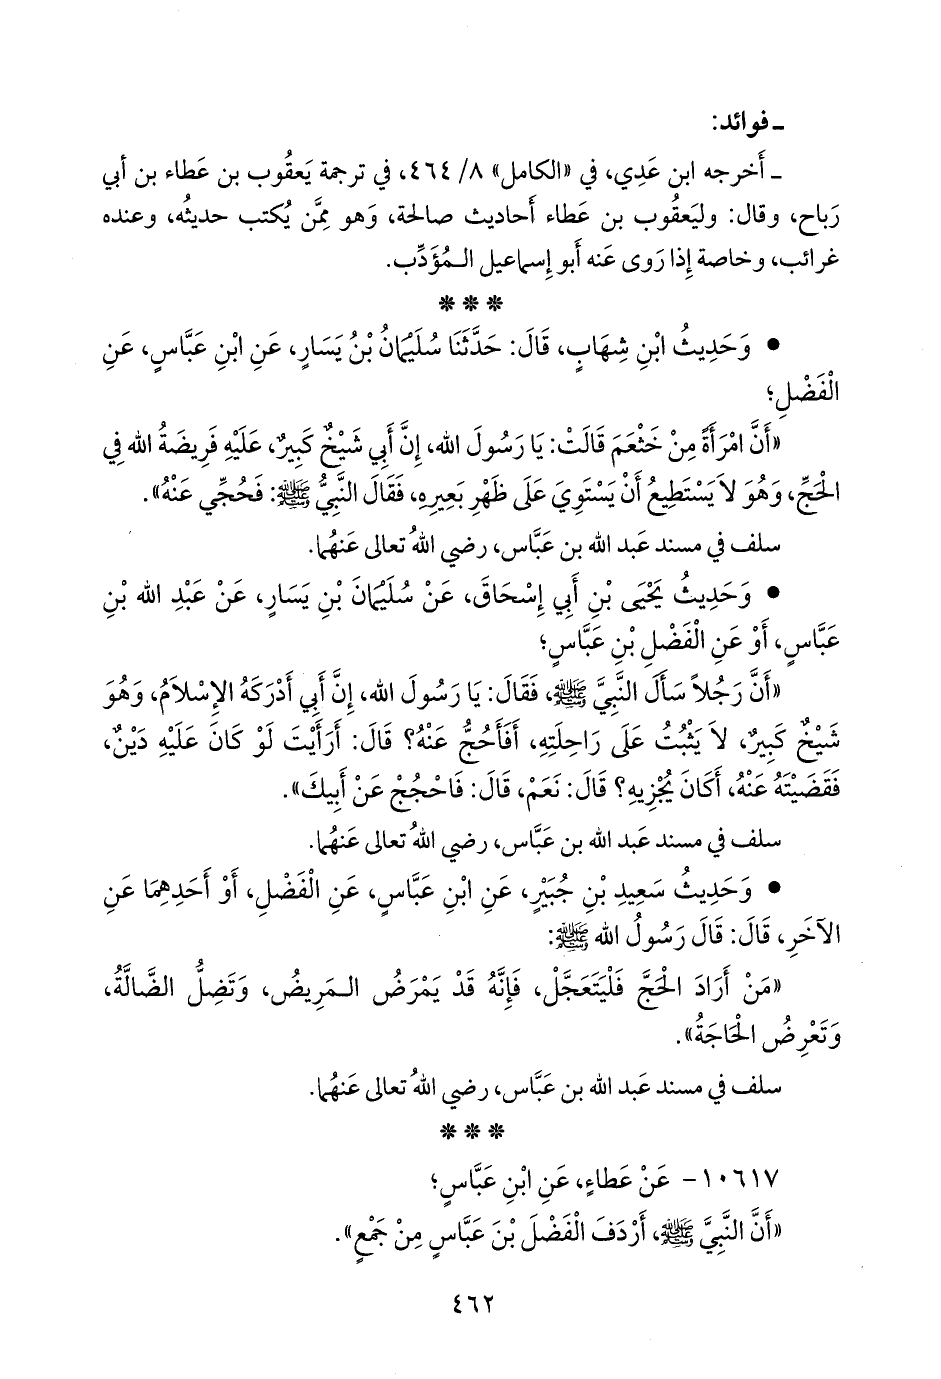 ـ فوائد:
ـ أَخرجه ابن عَدِي، في «الكامل» ٨/ ٤٦٤، في ترجمة يَعقُوب بن عَطاء بن أبي
رَباح، وقال: وليَعقُوب بن عَطاء أَحاديث صالحة، وَهو مِمَّن يُكتب حديثُه، وعنده
غرائب، وخاصة إِذا رَوى عَنه أَبو إِسماعيل الـمُؤَدِّب.
* * *
• وَحَدِيثُ ابْنِ شِهَابٍ، قَالَ: حَدَّثَنَا سُلَيْمَانُ بْنُ يَسَارٍ، عَنِ ابْنِ عَبَّاسٍ، عَنِ
الْفَضْلِ؛
«أَنَّ امْرَأَةً مِنْ خَثْعَمَ قَالَتْ: يَا رَسُولَ الله، إِنَّ أَبِي شَيْخٌ كَبِيرٌ، عَلَيْهِ فَرِيضَةُ الله فِي
الْحَجِّ، وَهُوَ لاَ يَسْتَطِيعُ أَنْ يَسْتَوِيَ عَلَى ظَهْرِ بَعِيرِهِ، فَقَالَ النَّبِيُّ ﷺ: فَحُجِّي عَنْهُ».
سلف في مسند عَبد الله بن عَبَّاس، رضي اللهُ تعالى عَنهُما.
• وَحَدِيثُ يَحْيَى بْنِ أَبِي إِسْحَاقَ، عَنْ سُلَيْمَانَ بْنِ يَسَارٍ، عَنْ عَبْدِ الله بْنِ
عَبَّاسٍ، أَوْ عَنِ الْفَضْلِ بْنِ عَبَّاسٍ؛
«أَنَّ رَجُلاً سَأَلَ النَّبِيَّ ﷺ، فَقَالَ: يَا رَسُولَ الله، إِنَّ أَبِي أَدْرَكَهُ الإِسْلاَمُ، وَهُوَ
شَيْخٌ كَبِيرٌ، لاَ يَثْبُتُ عَلَى رَاحِلَتِهِ، أَفَأَحُجُّ عَنْهُ؟ قَالَ: أَرَأَيْتَ لَوْ كَانَ عَلَيْهِ دَيْنٌ،
فَقَضَيْتَهُ عَنْهُ، أَكَانَ يُجْزِيهِ؟ قَالَ: نَعَمْ، قَالَ: فَاحْجُجْ عَنْ أَبِيكَ».
سلف في مسند عَبد الله بن عَبَّاس، رضي اللهُ تعالى عَنهُما.
• وَحَدِيثُ سَعِيدِ بْنِ جُبَيْرٍ، عَنِ ابْنِ عَبَّاسٍ، عَنِ الْفَضْلِ، أَوْ أَحَدِهِمَا عَنِ
الآخَرِ، قَالَ: قَالَ رَسُولُ الله ﷺ:
«مَنْ أَرَادَ الْحَجَّ فَلْيَتَعَجَّلْ، فَإِنَّهُ قَدْ يَمْرَضُ الـمَرِيضُ، وَتَضِلُّ الضَّالَّةُ،
وَتَعْرِضُ الْحَاجَةُ».
سلف في مسند عَبد الله بن عَبَّاس، رضي اللهُ تعالى عَنهُما.
* * *
١٠٦١٧- عَنْ عَطَاءٍ، عَنِ ابْنِ عَبَّاسٍ؛
«أَنَّ النَّبِيَّ ﷺ، أَرْدَفَ الْفَضْلَ بْنَ عَبَّاسٍ مِنْ جَمْعٍ».
٤٦٢